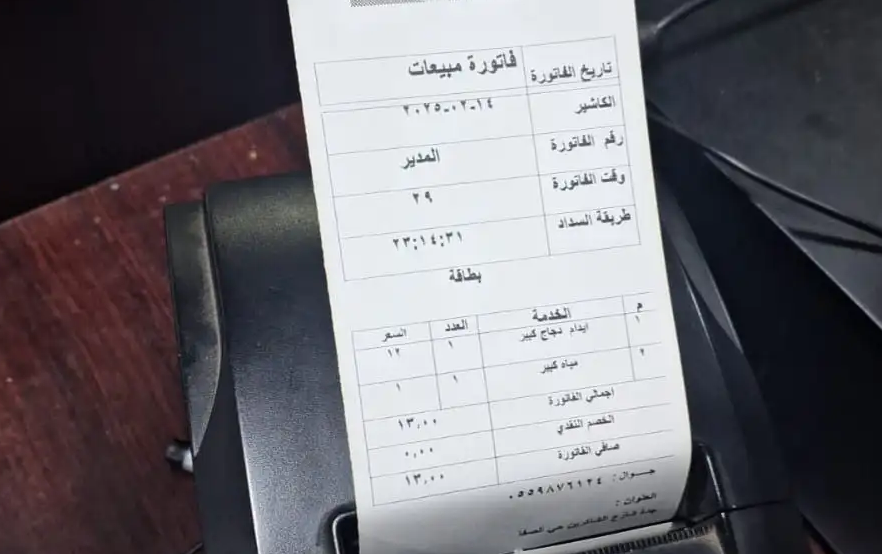 فاتورة مبيعات
تاريخ الفاتورة ٢٠٢٥-٠٢-١٤
الكاشير المدير
رقم الفاتورة ٢٩
وقت الفاتورة ٢٣:١٤:٣١
طريقة السداد بطاقة
م الخدمة العدد السعر
١ ايدام دجاج كبير ١ ١٢
٢ مياه كبير ١ ١
اجمالي الفاتورة ١٣,٠٠
الخصم النقدي ٠,٠٠
صافي الفاتورة ١٣,٠٠
جـــوال : ٠٥٥٩٨٧٦١٢٤
العنوان :
جدة شارع حي الصفا